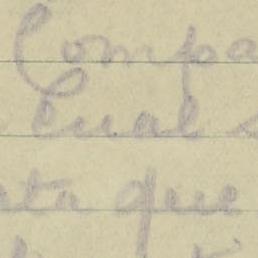 Compa
cual s
ta que